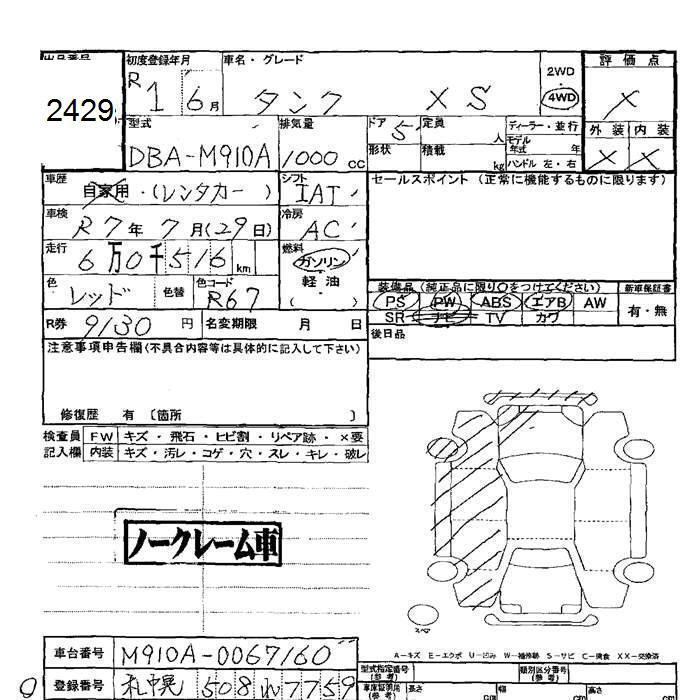 出品番号 初度登録年月 車名・グレード 評価点
2429 R1 6月 タンク XS 2WD 4WD X
型式 排気量 ドア 5 定員 人 ディーラー・並行 外装 内装
DBA-M910A 1000cc 形状 積載 kg モデル年式 年 ハンドル 左・右 X X
車歴 自家用・(レンタカー) シフト IAT セールスポイント (正常に機能するものに限ります)
車検 R7年7月(29日) 冷房 AC
走行 6万0千516km 燃料 ガソリン 軽油 ( )
色 レッド 色替 色コード R67
装備品 (純正品に限り○をつけてください) 新車保証書
PS PW ABS エアB AW 有・無
SR ナビ TV カワ
R券 9130円 名変期限 月 日 後日品
注意事項申告欄(不具合内容等は具体的に記入して下さい)
修復歴 有 〔箇所 〕
検査員記入欄 FW キズ・飛石・ヒビ割・リペア跡・×要
内装 キズ・汚レ・コゲ・穴・スレ・キレ・破レ
ノークレーム車
スペア
A-キズ E-エクボ U-凹み W-補修跡 S-サビ C-腐食 XX-交換済
車台番号 M910A-0067160 型式指定番号(参考) 類別区分番号(参考)
登録番号 札幌 508 わ 7759 車庫証明用(参考) 長さ cm 幅 cm 高さ cm